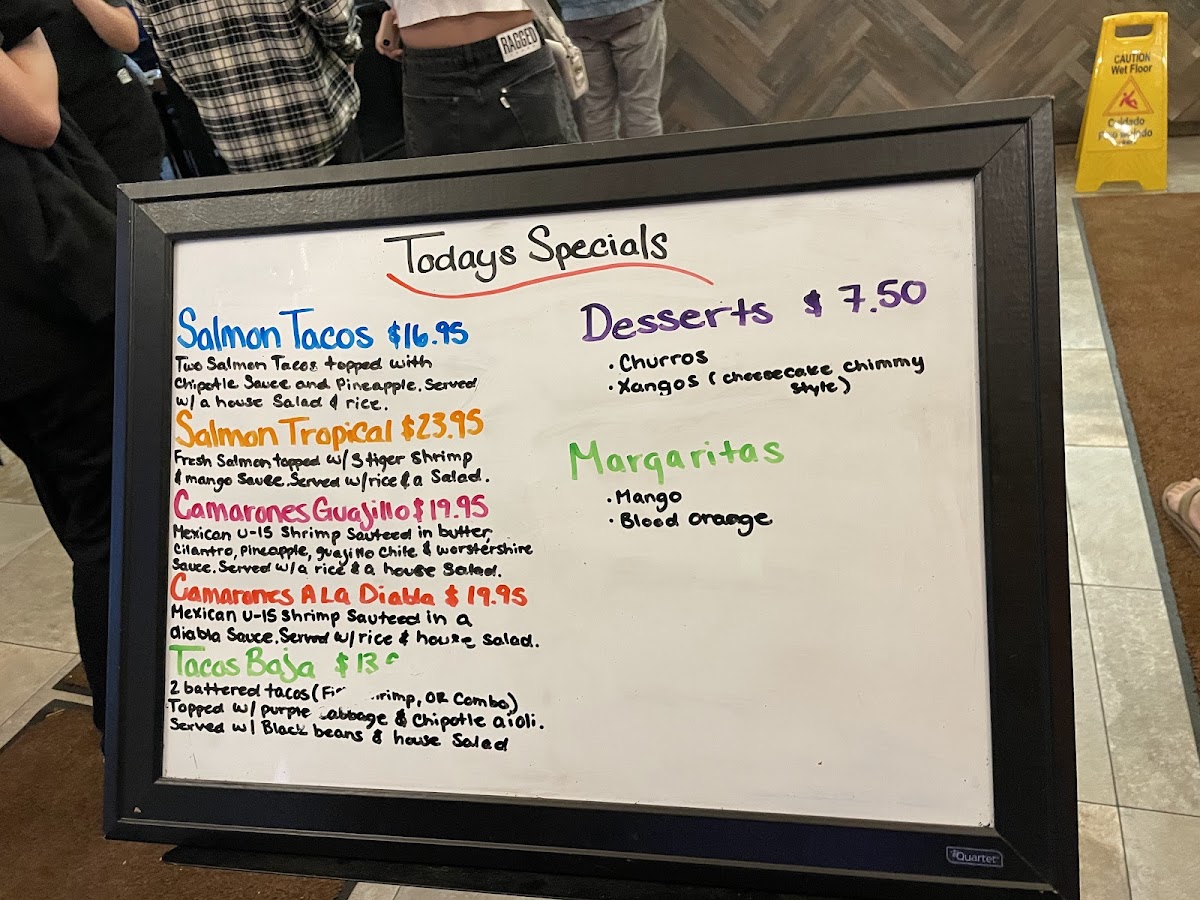 RAGGED
CAUTION
Wet Floor
Cuidado
Todays Specials
Salmon Tacos $16.95
Two Salmon Tacos topped with
Chipotle Sauce and Pineapple. Served
w/ a house Salad & rice.
Salmon Tropical $23.95
Fresh Salmon topped w/ 3 tiger Shrimp
& mango Sauce. Served w/ rice & a Salad.
Camarones Guajillo $19.95
Mexican U-15 Shrimp Sauteed in butter,
Cilantro, Pineapple, guajillo Chile & worstershire
Sauce. Served w/ a rice & a house Salad.
Camarones A La Diabla $19.95
Mexican U-15 Shrimp Sauteed in a
diabla Sauce. Served w/ rice & house salad.
Tacos Baja $13
2 battered tacos ( OR Combo)
Topped w/ purple & Chipotle aioli.
Served w/ Black beans & house Salad
Desserts $7.50
• Churros
• Xangos (cheesecake chimmy
style)
Margaritas
• Mango
• Blood orange
Quartet